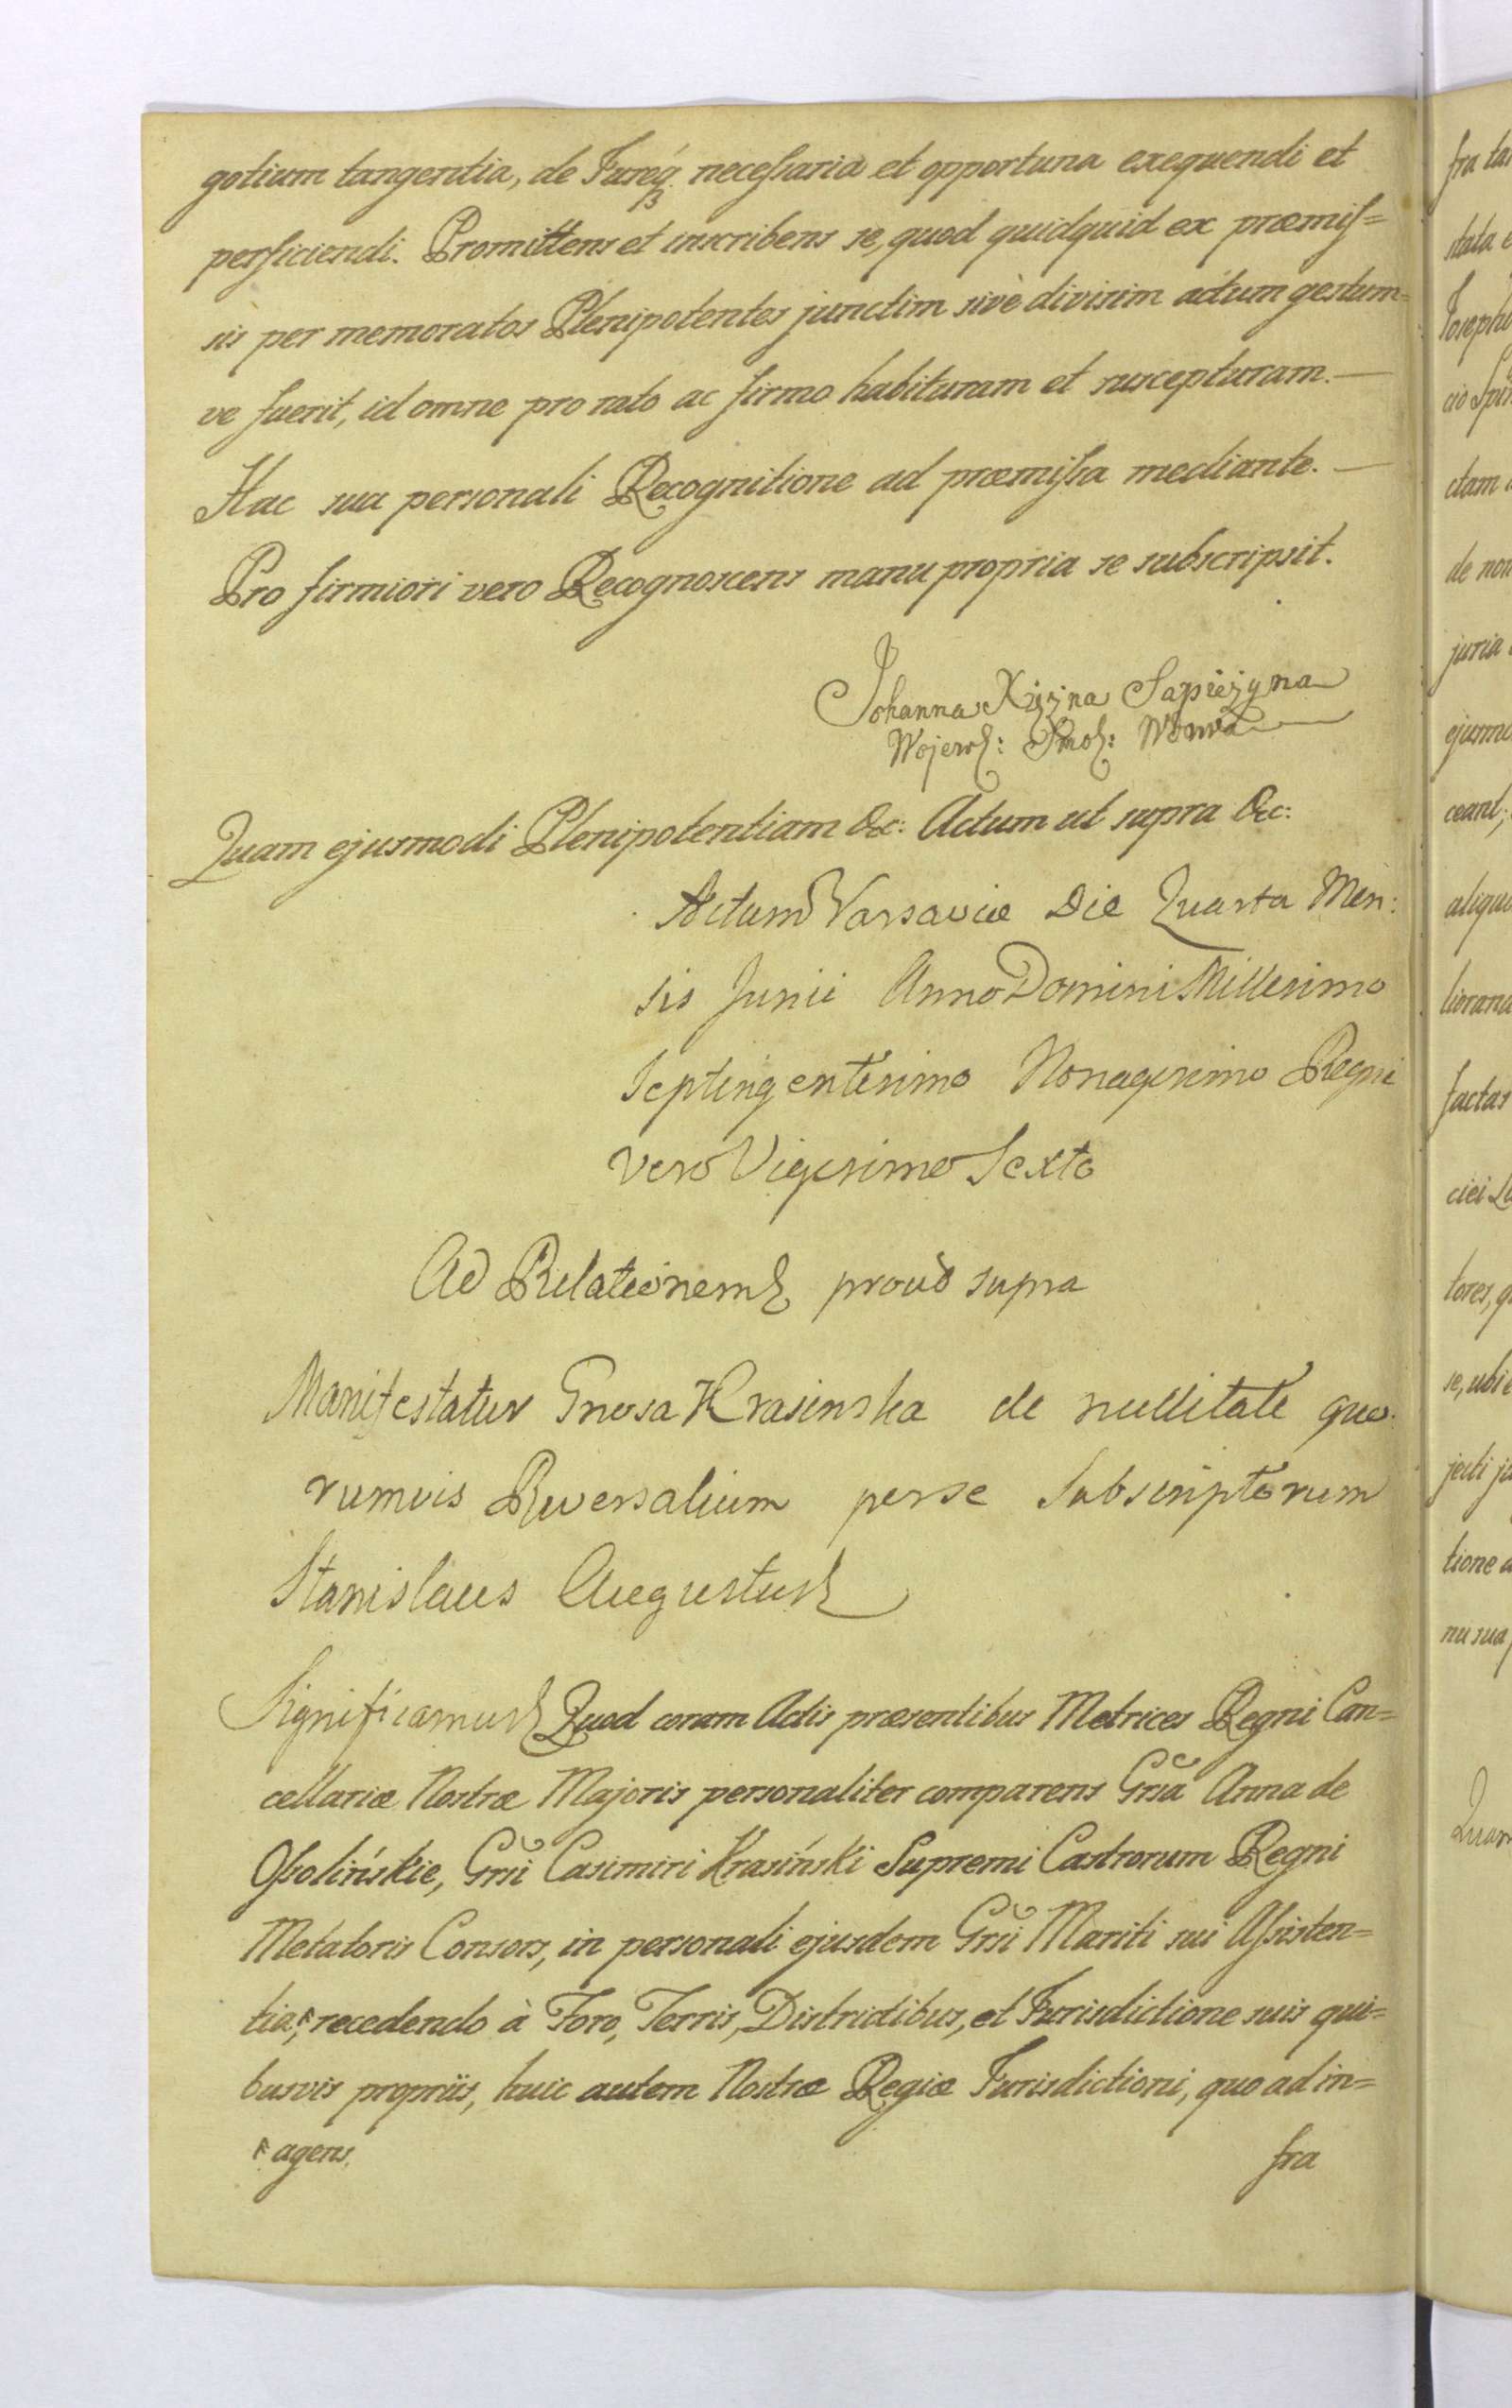 gotium tangentia, de Jureq3 necessaria et opportuna exequendi et
perficiendi. Promittens et inscribens se, quod quidquid ex præmis=
sis per memoratos Plenipotentes junctim sivè divisim actum gestum=
ve fuerit, id omne pro rato ac firmo habituram et suscepturam.—
Hac sua personali Recognitione ad præmissa mediante.—
Pro firmiori vero Recognoscens manu propria se subscripsit.
Johanna Xiężna Sapieżyna
Wojew: Smol:
Quam ejusmodi Plenipotentiam &c: Actum ut supra &c:
Actum Varsaviæ Die Quarta Men:
sis Junii Anno Domini Millesimo
Septingentesimo Nonagesimo Regni
vero Vigesimo Sexto
Ad Relationem proud supra
Manifestatur Gnosa Krasinska de nullitate quo:
rumvis Reversalium perse Subscriptorum
Stanislaus Augustus
Significamus Quod coram Actis præsentibus Metrices Regni Can=
cellariæ Nostræ Majoris personaliter comparens Grsa Anna de
Ossolińskie, Grsi Casimiri Krasiński Supremi Castrorum Regni
Metatoris Consors, in personali ejusdem Grsi Mariti sui Assisten=
tia, recedendo à Foro, Terris, Districtibus, et Jurisdictione suis qui=
busvis propriis, huic autem Nostræ Regiæ Jurisdictioni, quo ad in=
agens.
fra